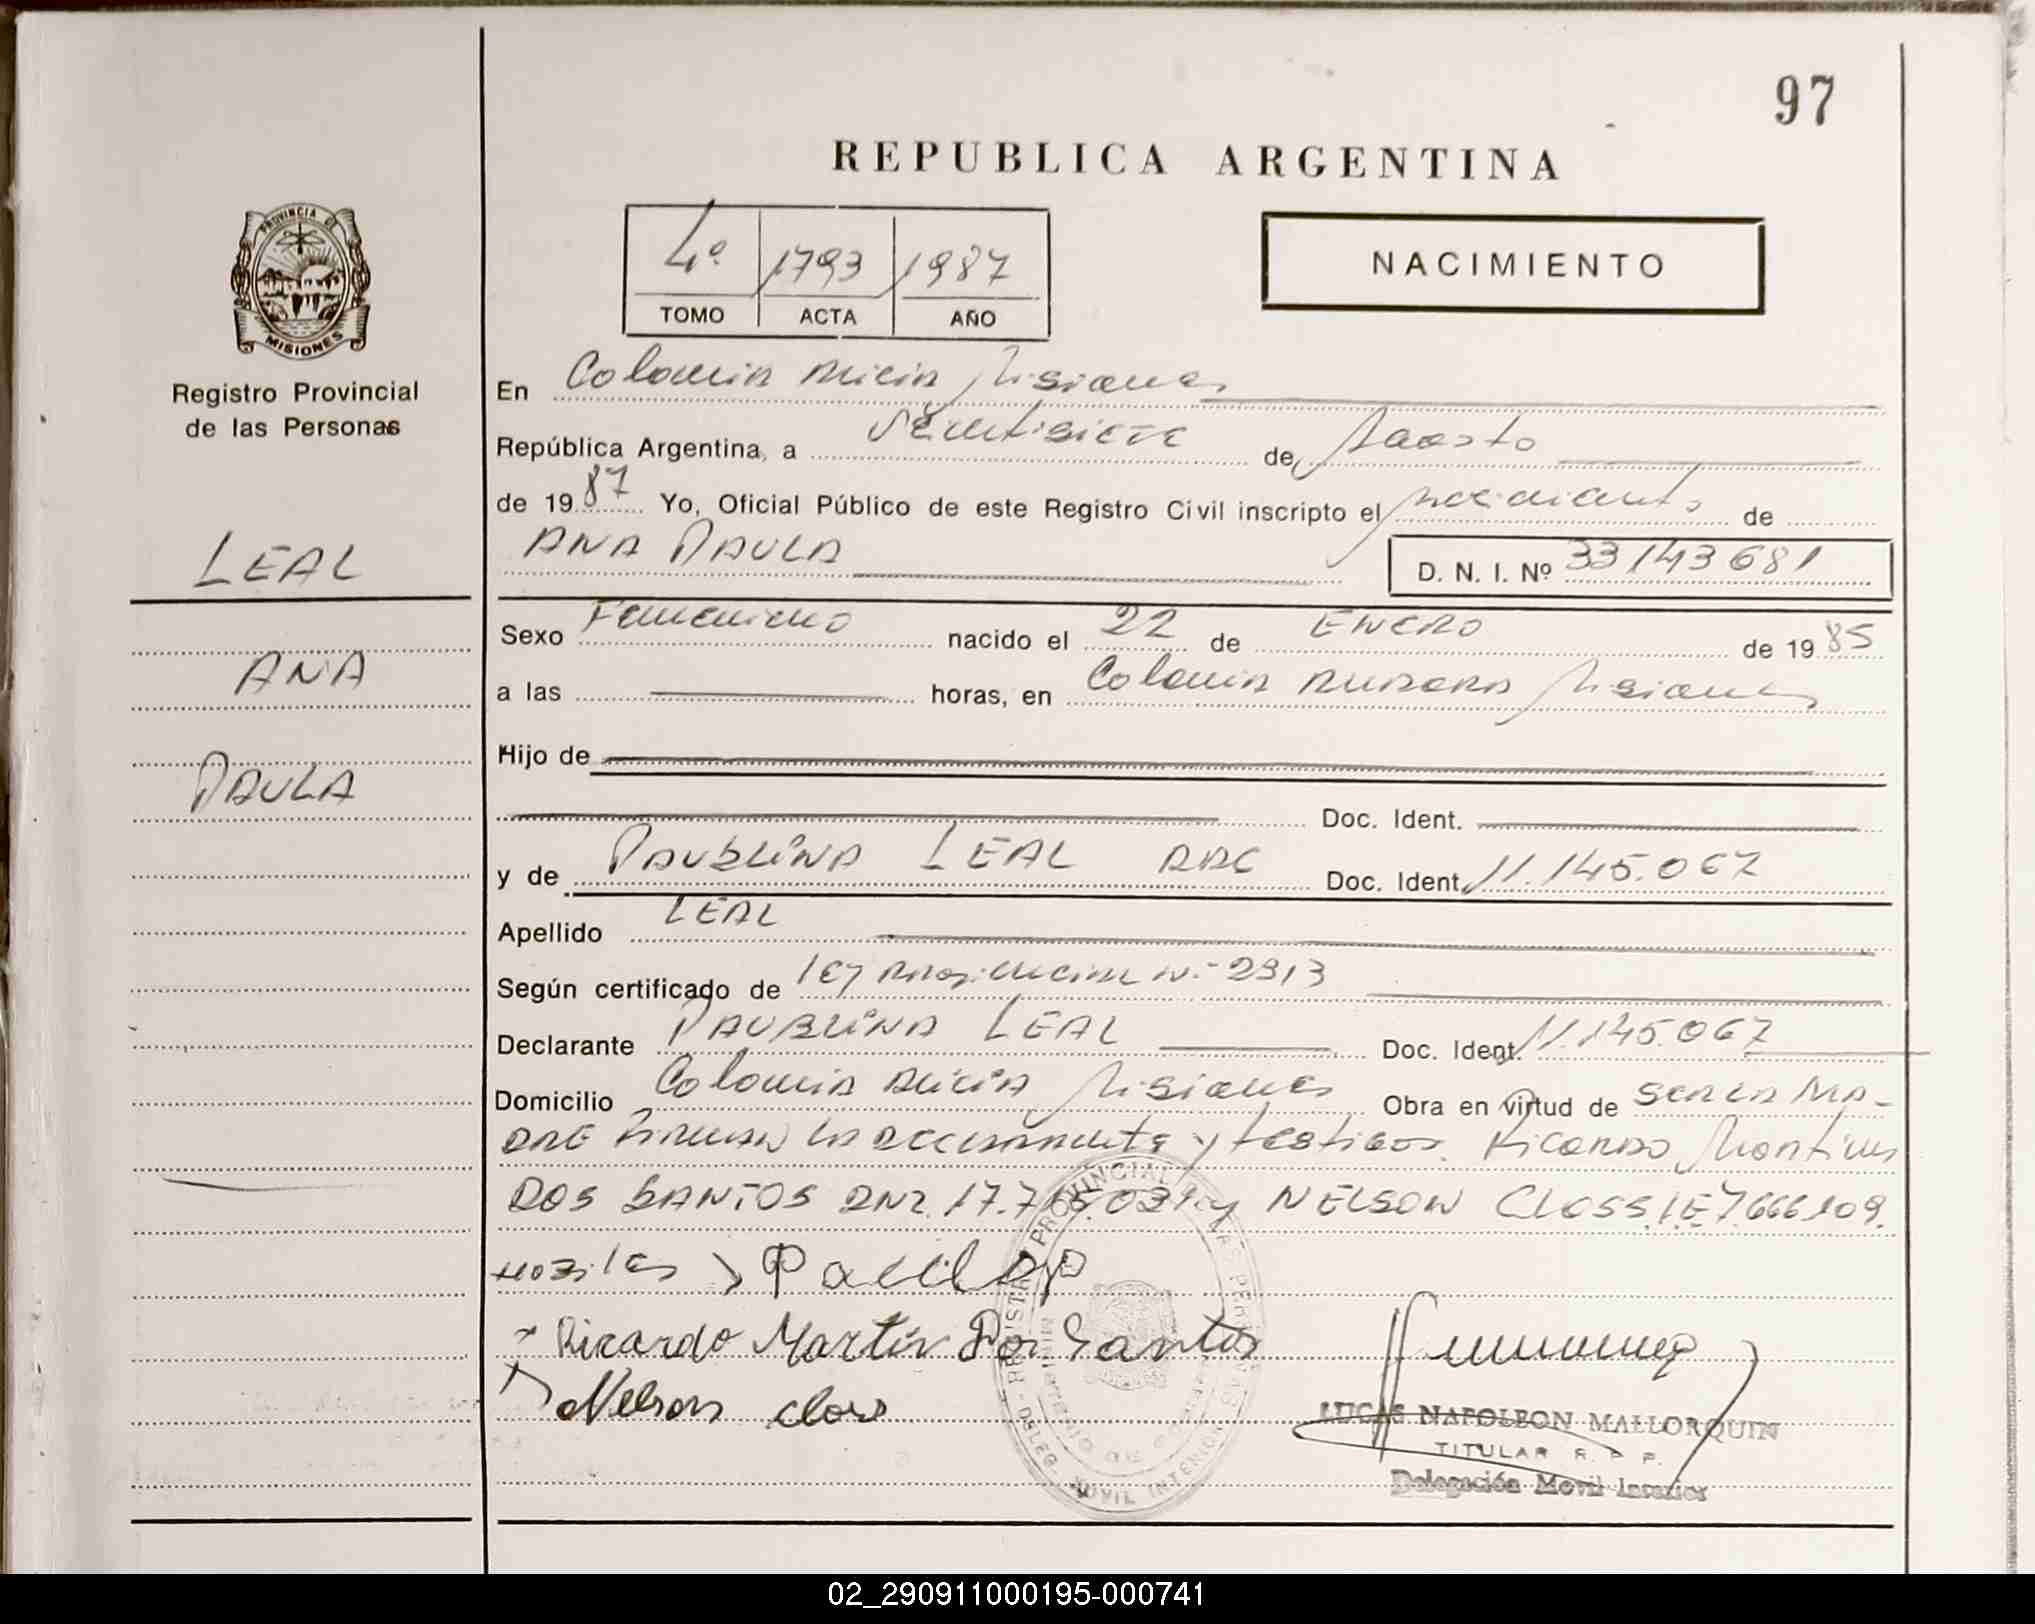 97
REPUBLICA ARGENTINA
4º 1793 1987
TOMO ACTA AÑO
NACIMIENTO
PROVINCIA DE MISIONES
Registro Provincial
de las Personas
LEAL
ANA
PAULA
En Colonia Alicia Misiones
República Argentina, a Veintisiete de Agosto
de 1987 Yo, Oficial Público de este Registro Civil inscripto el nacimiento de
ANA PAULA D. N. I. Nº 33143681
Sexo Femenino nacido el 22 de ENERO de 1985
a las horas, en Colonia Aurora Misiones
Hijo de
Doc. Ident.
y de PAUBLINA LEAL ARG Doc. Ident. 11.145.067
Apellido LEAL
Según certificado de ley Provincial Nº 2913
Declarante PAUBLINA LEAL Doc. Ident. 11.145.067
Domicilio Colonia Alicia Misiones Obra en virtud de SER LA MA-
DRE Firman la declarante y testigos. Ricardo Martin
DOS SANTOS DNI. 17.715.031 y NELSON CLOSS LE 7.666.109.
Ricardo Martin Dos Santos
Nelson Closs
LUCAS NAPOLEON MALLORQUIN
TITULAR R. P. P.
Delegación Movil Interior
02_290911000195-000741